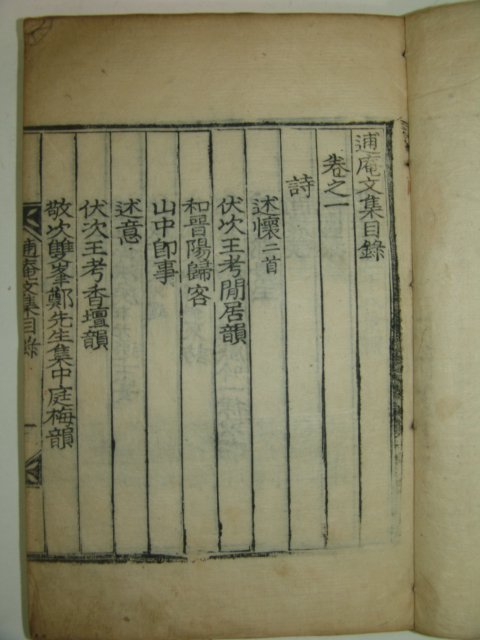 逋庵文集目錄
卷之一
詩
述懷二首
伏次王考閒居韻
和晉陽歸客
山中卽事
述意
伏次王考香壇韻
敬次雙峯鄭先生集中庭梅韻
逋庵文集目錄 一